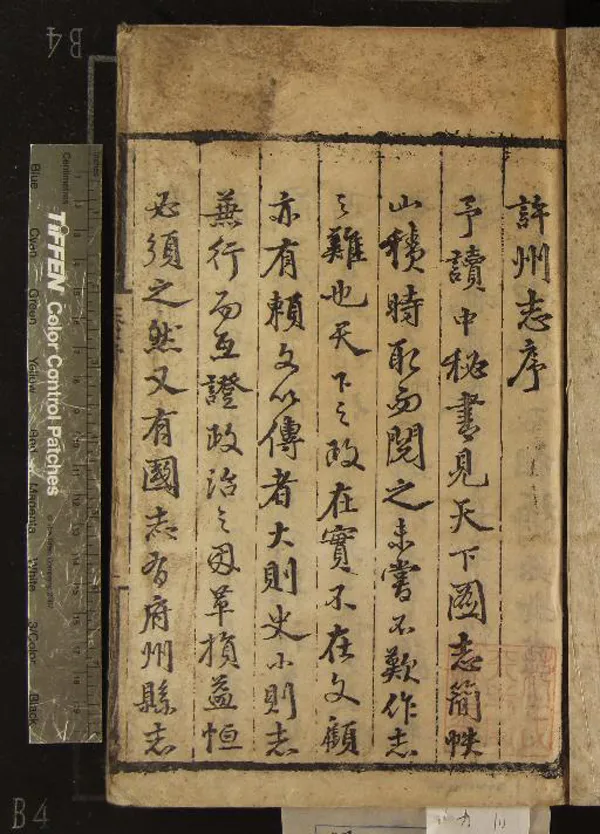 許州志序
予讀中秘書見天下圖志簡帙
山積時取而閱之未嘗不歎作志
之難也天下之政在實不在文顧
亦有賴文以傳者大則史小則志
兼行而互證政治之因革損益恒
必須之然又有國志有府州縣志
B4
B4
Centimetres
TIFFEN Color Control Patches
Blue
Cyan
Green
Yellow
Red
Magenta
White
3/Color
Black